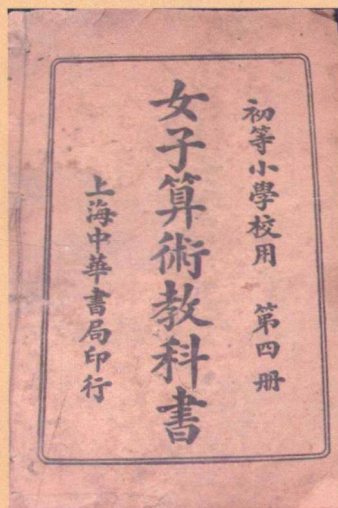 初等小學校用　第四册
女子算術教科書
上海中華書局印行